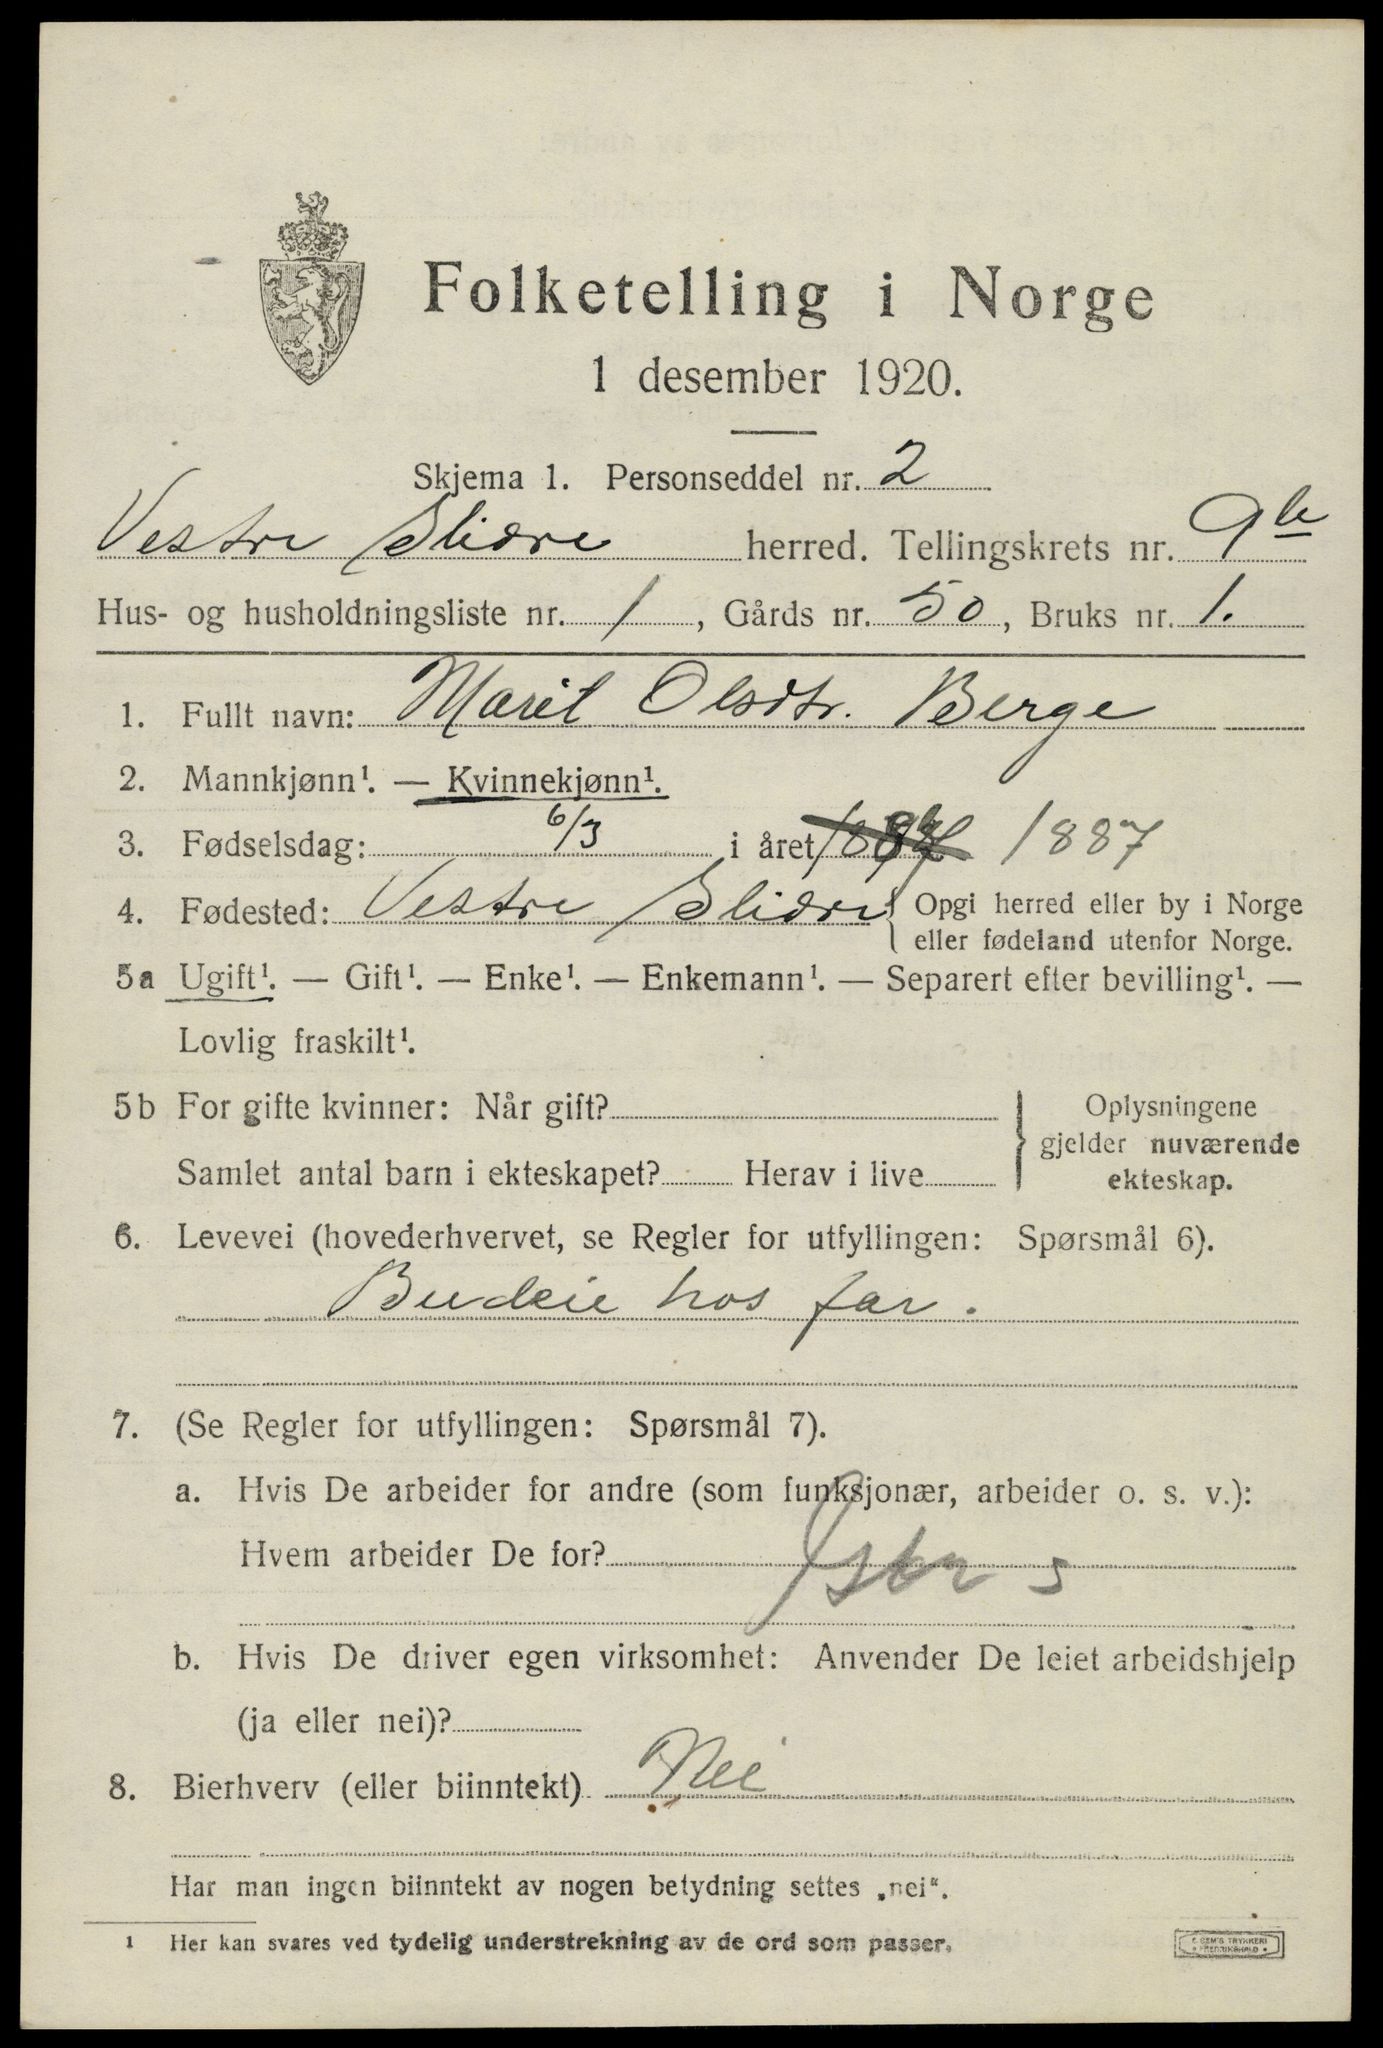 Folketelling i Norge
1 desember 1920.
Skjema 1. Personseddel nr. 2
Vestre Slidre herred. Tellingskrets nr. 9b
Hus- og husholdningsliste nr. 1, Gårds nr. 50, Bruks nr. 1.
1. Fullt navn: Marit Olsdtr. Berge
2. Mannkjønn¹. — Kvinnekjønn¹.
3. Fødselsdag: 6/3 i året 1887
4. Fødested: Vestre Slidre { Opgi herred eller by i Norge
eller fødeland utenfor Norge.
5a Ugift¹. — Gift¹. — Enke¹. — Enkemann¹. — Separert efter bevilling¹. —
Lovlig fraskilt¹.
5b For gifte kvinner: Når gift?
Samlet antal barn i ekteskapet? Herav i live
} Oplysningene
gjelder nuværende
ekteskap.
6. Levevei (hovederhvervet, se Regler for utfyllingen: Spørsmål 6).
Budeie hos far.
7. (Se Regler for utfyllingen: Spørsmål 7).
a. Hvis De arbeider for andre (som funksjonær, arbeider o. s. v.):
Hvem arbeider De for?
b. Hvis De driver egen virksomhet: Anvender De leiet arbeidshjelp
(ja eller nei)?
8. Bierhverv (eller biinntekt) Nei
Har man ingen biinntekt av nogen betydning settes „nei“.
¹ Her kan svares ved tydelig understrekning av de ord som passer.
SEM'S TRYKKERI
• FREDRIKSHALD •